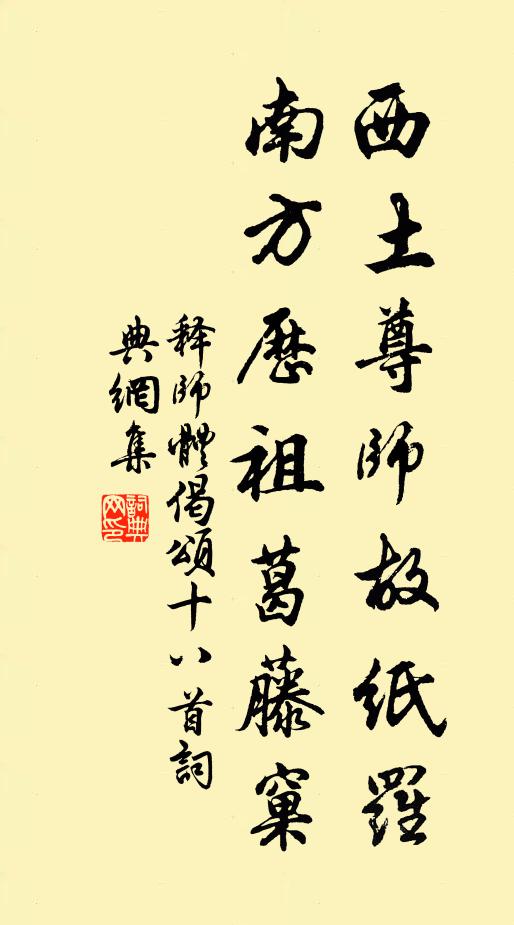 西土尊師故紙羅
南方歷祖葛藤窠
释師體偈頌十八首詞
典網集
詞典
网印